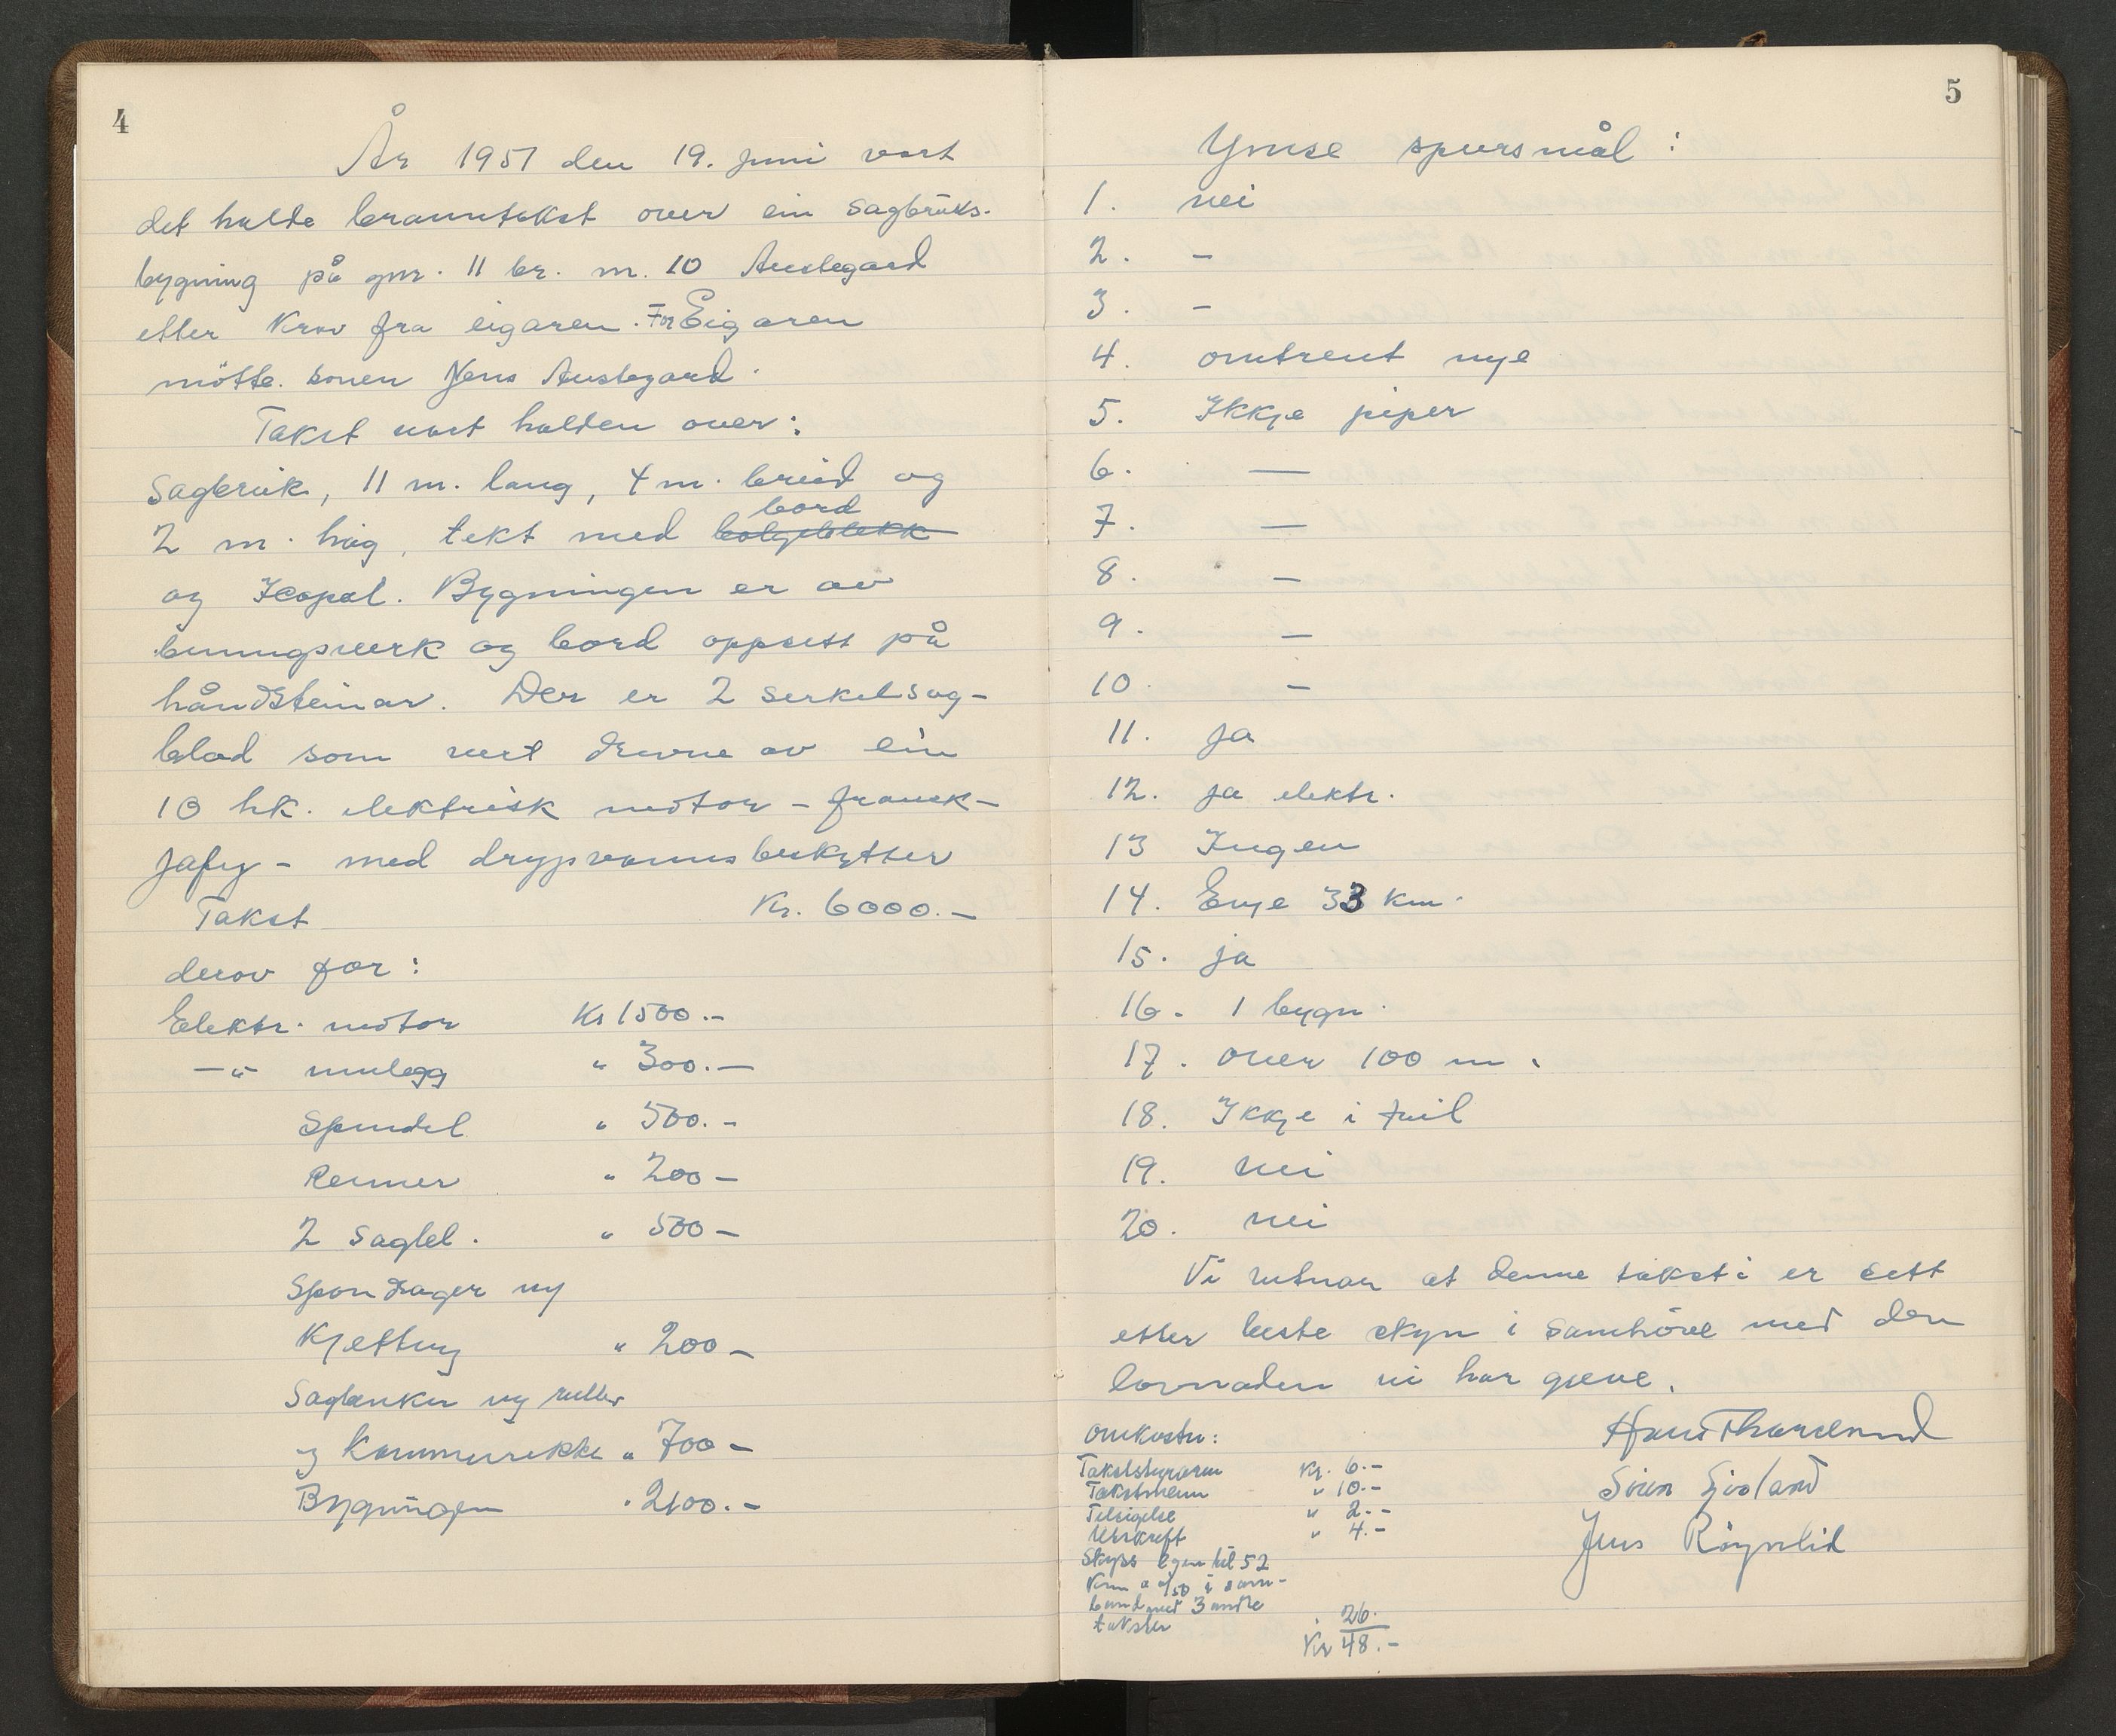 4
År 1951 den 19. juni vart
det halde branntakst over ein sagbruks-
bygning på gnr. 11 br. nr. 10 Austegard
etter krav fra eigaren. For Eigaren
møtte sonen Jens Austegard.
Takst vart halden over:
Sagbruk, 11 m. lang, 4 m. breid og
bord
2 m. høg, tekt med bølgeblekk
og Icopal. Bygningen er av
bunngsverk og bord oppsett på
håndsteinar. Der er 2 serkelsag-
blad som vert drevne av ein
10 hk. elektrisk motor - fransk-
Jafy - med drypvannsbeskytter
Takst Kr. 6000.-
derav for:
Elektr. motor Kr 1500.-
-"- innlegg " 300.-
Spindel " 500.-
Reimer " 200-
2 sagbl. " 500-
Spondrager og
Kjetting " 200-
Sagbenker og ruller
og kammerikke " 700-
Bygningen " 2100.-
5
Ymse spursmål:
1. nei
2. -
3. -
4. omtrent nye
5. Ikkje piper
6. -
7. -
8. -
9. -
10. -
11. Ja
12. ja elektr.
13 Ingen
14. Evje 33 km.
15. ja
16. 1 bygn.
17. over 100 m.
18. Ikkje i tvil
19. nei
20. nei
Vi vitnar at denne takst: er sett
etter beste skyn i samhøve med den
lovnaden vi har gjeve.
Omkostn:
Takststyraren Kr. 6.-
Takstmenn " 10.-
Tilsigelse " 2.-
Utskrift " 4.-
Skyss egen bil 52
Km a 0/50 i sam-
band med 3 andre
takster " 26.
Kr 48.-
Hans Thorslund
Sven Sjoland
Jens Røynlid